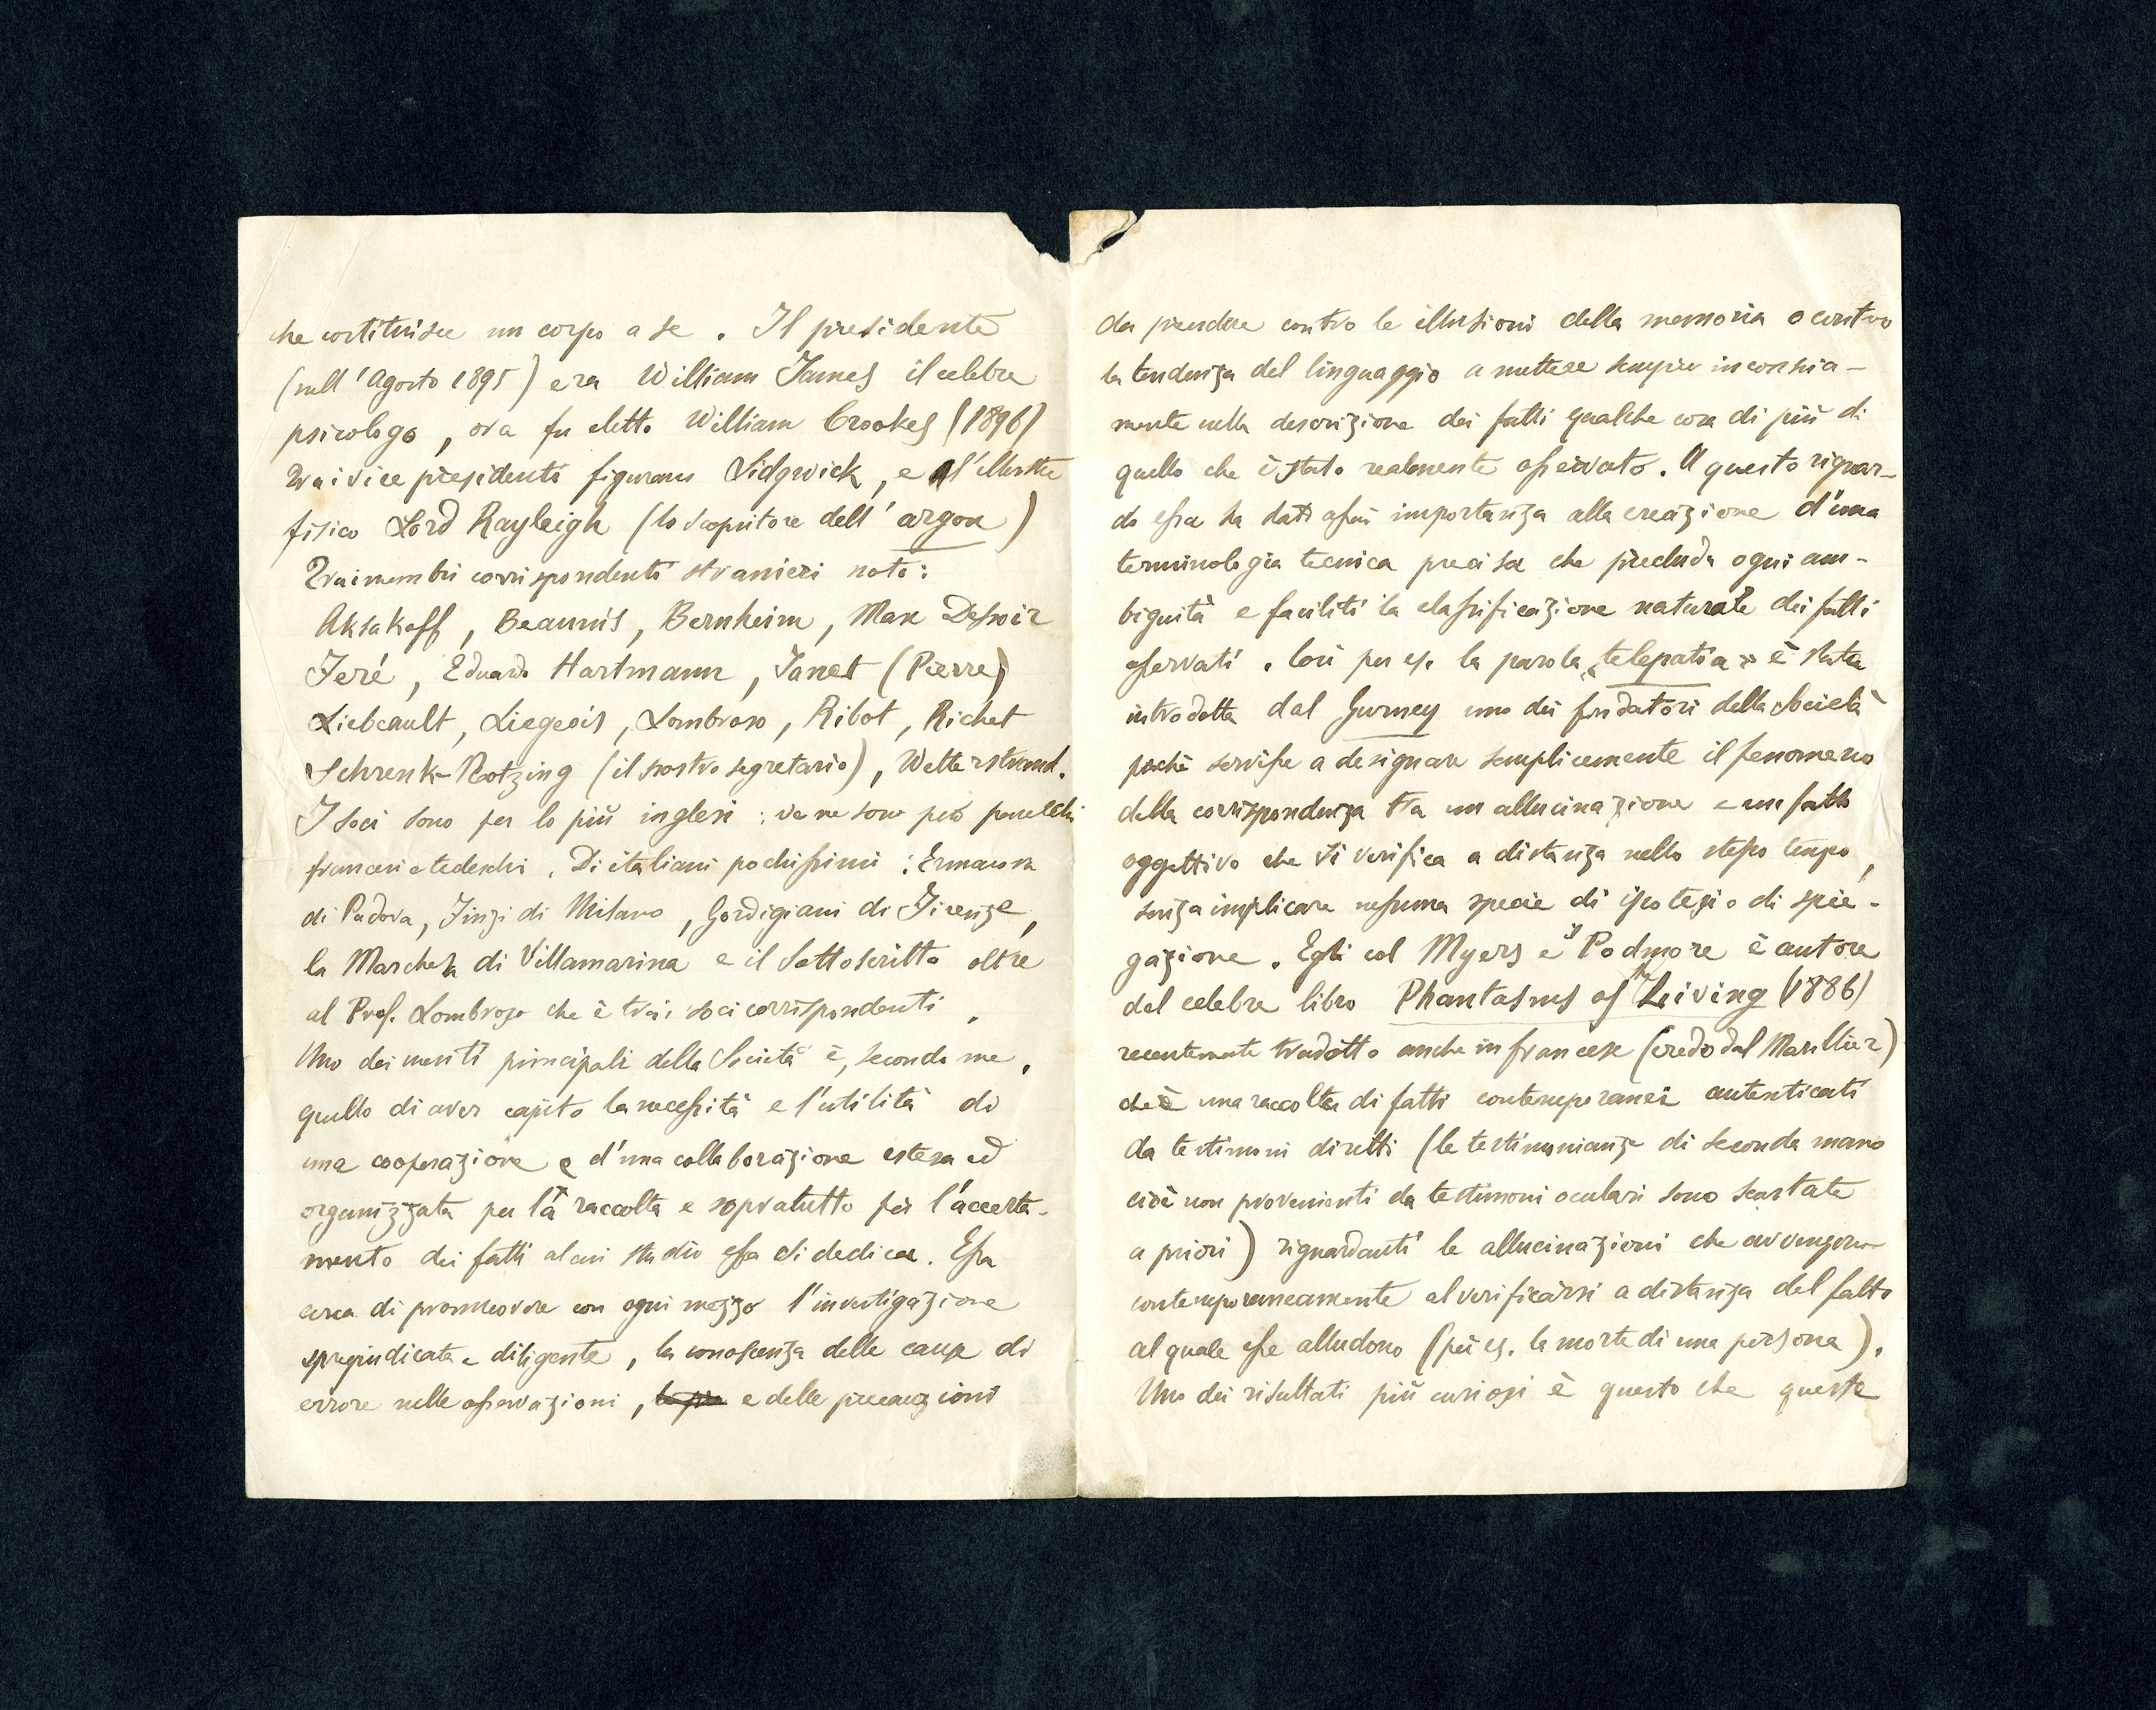 che costituisce un corpo a se. Il presidente
(nell'Agosto 1895) era William James il celebre
psicologo, ora fu eletto William Crookes (1896)
Trai vice presidenti figurano Sidgwick, e l'illustre
fisico Lord Rayleigh (lo scopritore dell'argon)
Trai membri corrispondenti stranieri noto:
Aksakoff, Beaunis, Bernheim, Max Dessoir
Feré, Eduardo Hartmann, Janet (Pierre)
Liebeault, Liegeois, Lombroso, Ribot, Richet
Schrenk-Notzing (il nostro segretario), Wetterstrand.
I soci sono per lo più inglesi: ve ne sono però parecchi
francesi e tedeschi. Di italiani pochissimi: Ermacora
di Padova, Finzi di Milano, Gordigiani di Firenze,
la Marchesa di Villamarina e il Sottoscritto oltre
al Prof. Lombroso che è trai soci corrispondenti.
Uno dei meriti principali della Società è, secondo me,
quello di aver capito la necessità e l'utilità di
una cooperazione e d'una collaborazione estesa ed
organizzata per la raccolta e sopratutto per l'accerta-
mento dei fatti al cui studio essa si dedica. Essa
cerca di promuovere con ogni mezzo l'investigazione
spregiudicata e diligente, la conoscenza delle cause di
errore nelle osservazioni, e delle precauzioni
da prendere contro le illusioni della memoria o contro
la tendenza del linguaggio a mettere sempre inconscia-
mente nella descrizione dei fatti qualche cosa di più di
quello che è stato realmente osservato. A questo riguar-
do essa ha dato assai importanza alla creazione d'una
terminologia tecnica precisa che precluda ogni am-
biguità e faciliti la classificazione naturale dei fatti
osservati. Così per es. la parola "telepatia" è stata
introdotta dal Gurney uno dei fondatori della Società
perchè servisse a designare semplicemente il fenomeno
della corrispondenza tra un allucinazione e un fatto
oggettivo che si verifica a distanza nello stesso tempo,
senza implicare nessuna specie di ipotesi o di spie-
gazione. Egli col Myers e il Podmore è autore
del celebre libro Phantasms of the Living (1886)
recentemente tradotto anche in francese (credo dal Marillier)
che è una raccolta di fatti contemporanei autenticati
da testimoni diretti (le testimonianze di seconda mano
cioè non provenienti da testimoni oculari sono scartate
a priori) riguardanti le allucinazioni che avvengono
contemporaneamente al verificarsi a distanza del fatto
al quale esse alludono (per es. la morte di una persona).
Uno dei risultati più curiosi è questo che queste